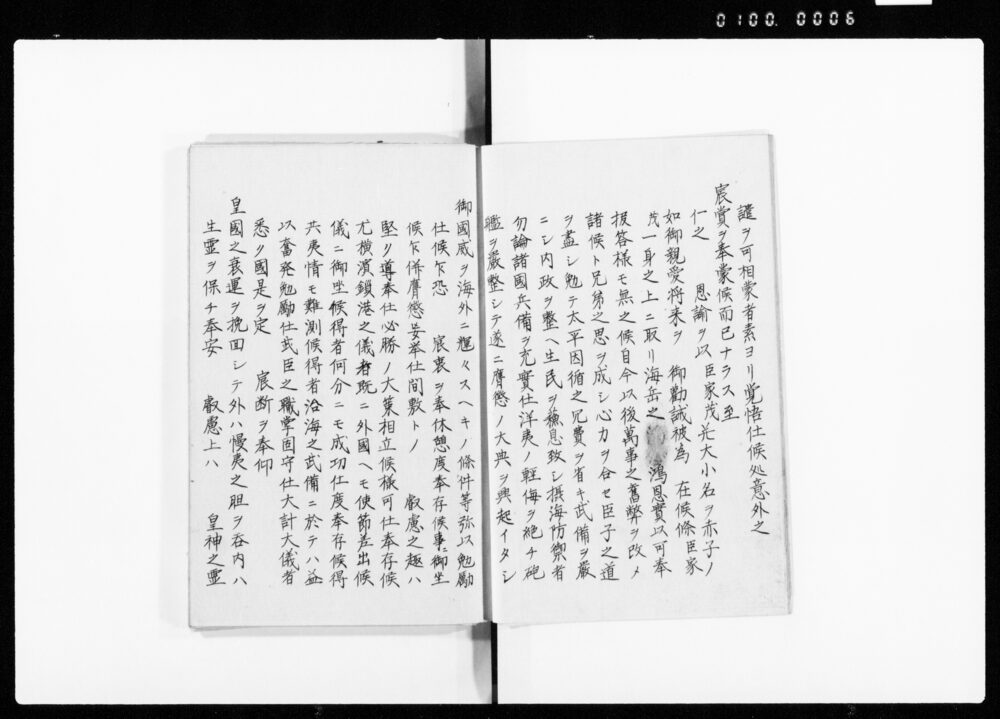 0100.0006
譴ヲ可相蒙者素ヨリ覚悟仕候処意外之
宸賞ヲ奉蒙候而已ナラス至
仁之　恩諭ヲ以臣家茂并大小名ヲ赤子ノ
如御親愛将来ヲ　御勸誡被為　在候條臣家
茂一身之上ニ取リ海岳之　鴻恩實以可奉
报答様モ無之候自今以後萬事之舊弊ヲ改メ
諸侯ト兄弟之思ヲ成シ心力ヲ合セ臣子之道
ヲ盡シ勉テ太平因循之冗費ヲ省キ武備ヲ嚴
ニシ内政ヲ整ヘ生民ヲ蘓息致シ摂海防禦者
勿論諸國兵備ヲ充實仕洋夷ノ軽侮ヲ絶チ砲
艦ヲ嚴整シテ遂ニ膺懲ノ大典ヲ興起イタシ
御國威ヲ海外ニ輝々スヘキノ條件等弥以勉勵
仕候乍恐　宸衷ヲ奉休憩度奉存候事ニ御坐
候乍併膺懲妄挙仕間敷トノ　叡慮之趣ハ
堅ク遵奉仕必勝ノ大策相立候様可仕奉存候
尤横濱鎖港之儀者既ニ外國ヘモ使節差出候
儀ニ御坐候得者何分ニモ成功仕度奉存候得
共夷情モ難測候得者沿海之武備ニ於テハ益
以奮発勉勵仕武臣之職掌固守仕大計大儀者
悉ク國是ヲ定　宸断ヲ奉仰
皇國之衰運ヲ挽回シテ外ハ慢夷之胆ヲ呑内ハ
生霊ヲ保チ奉安　叡慮上ハ　皇神之霊